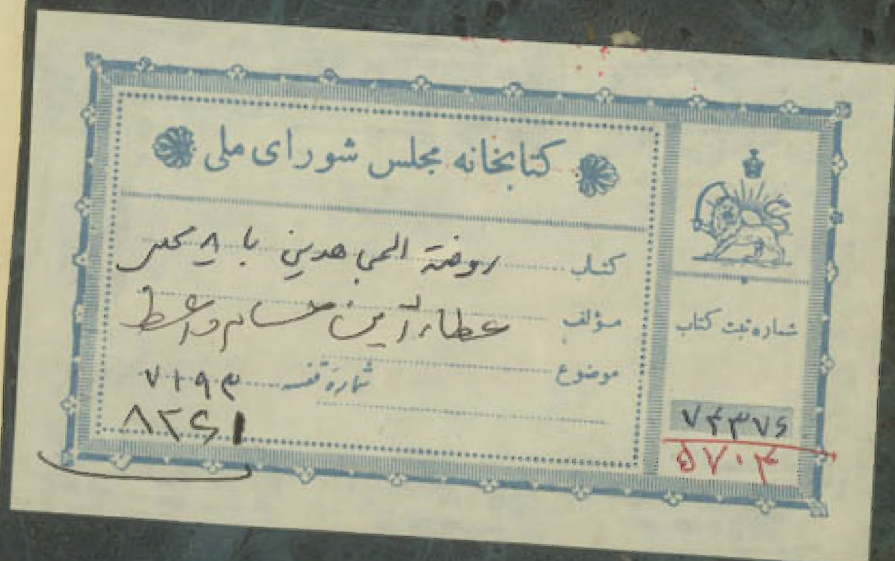 کتابخانه مجلس شورای ملی
کتاب روضة المجاهدین با
مؤلف عطاء
موضوع
شماره قفسه ۷۱۹۳
۸۲۶۱
شماره ثبت کتاب
۷۴۳۷۶
۵۷۰۴